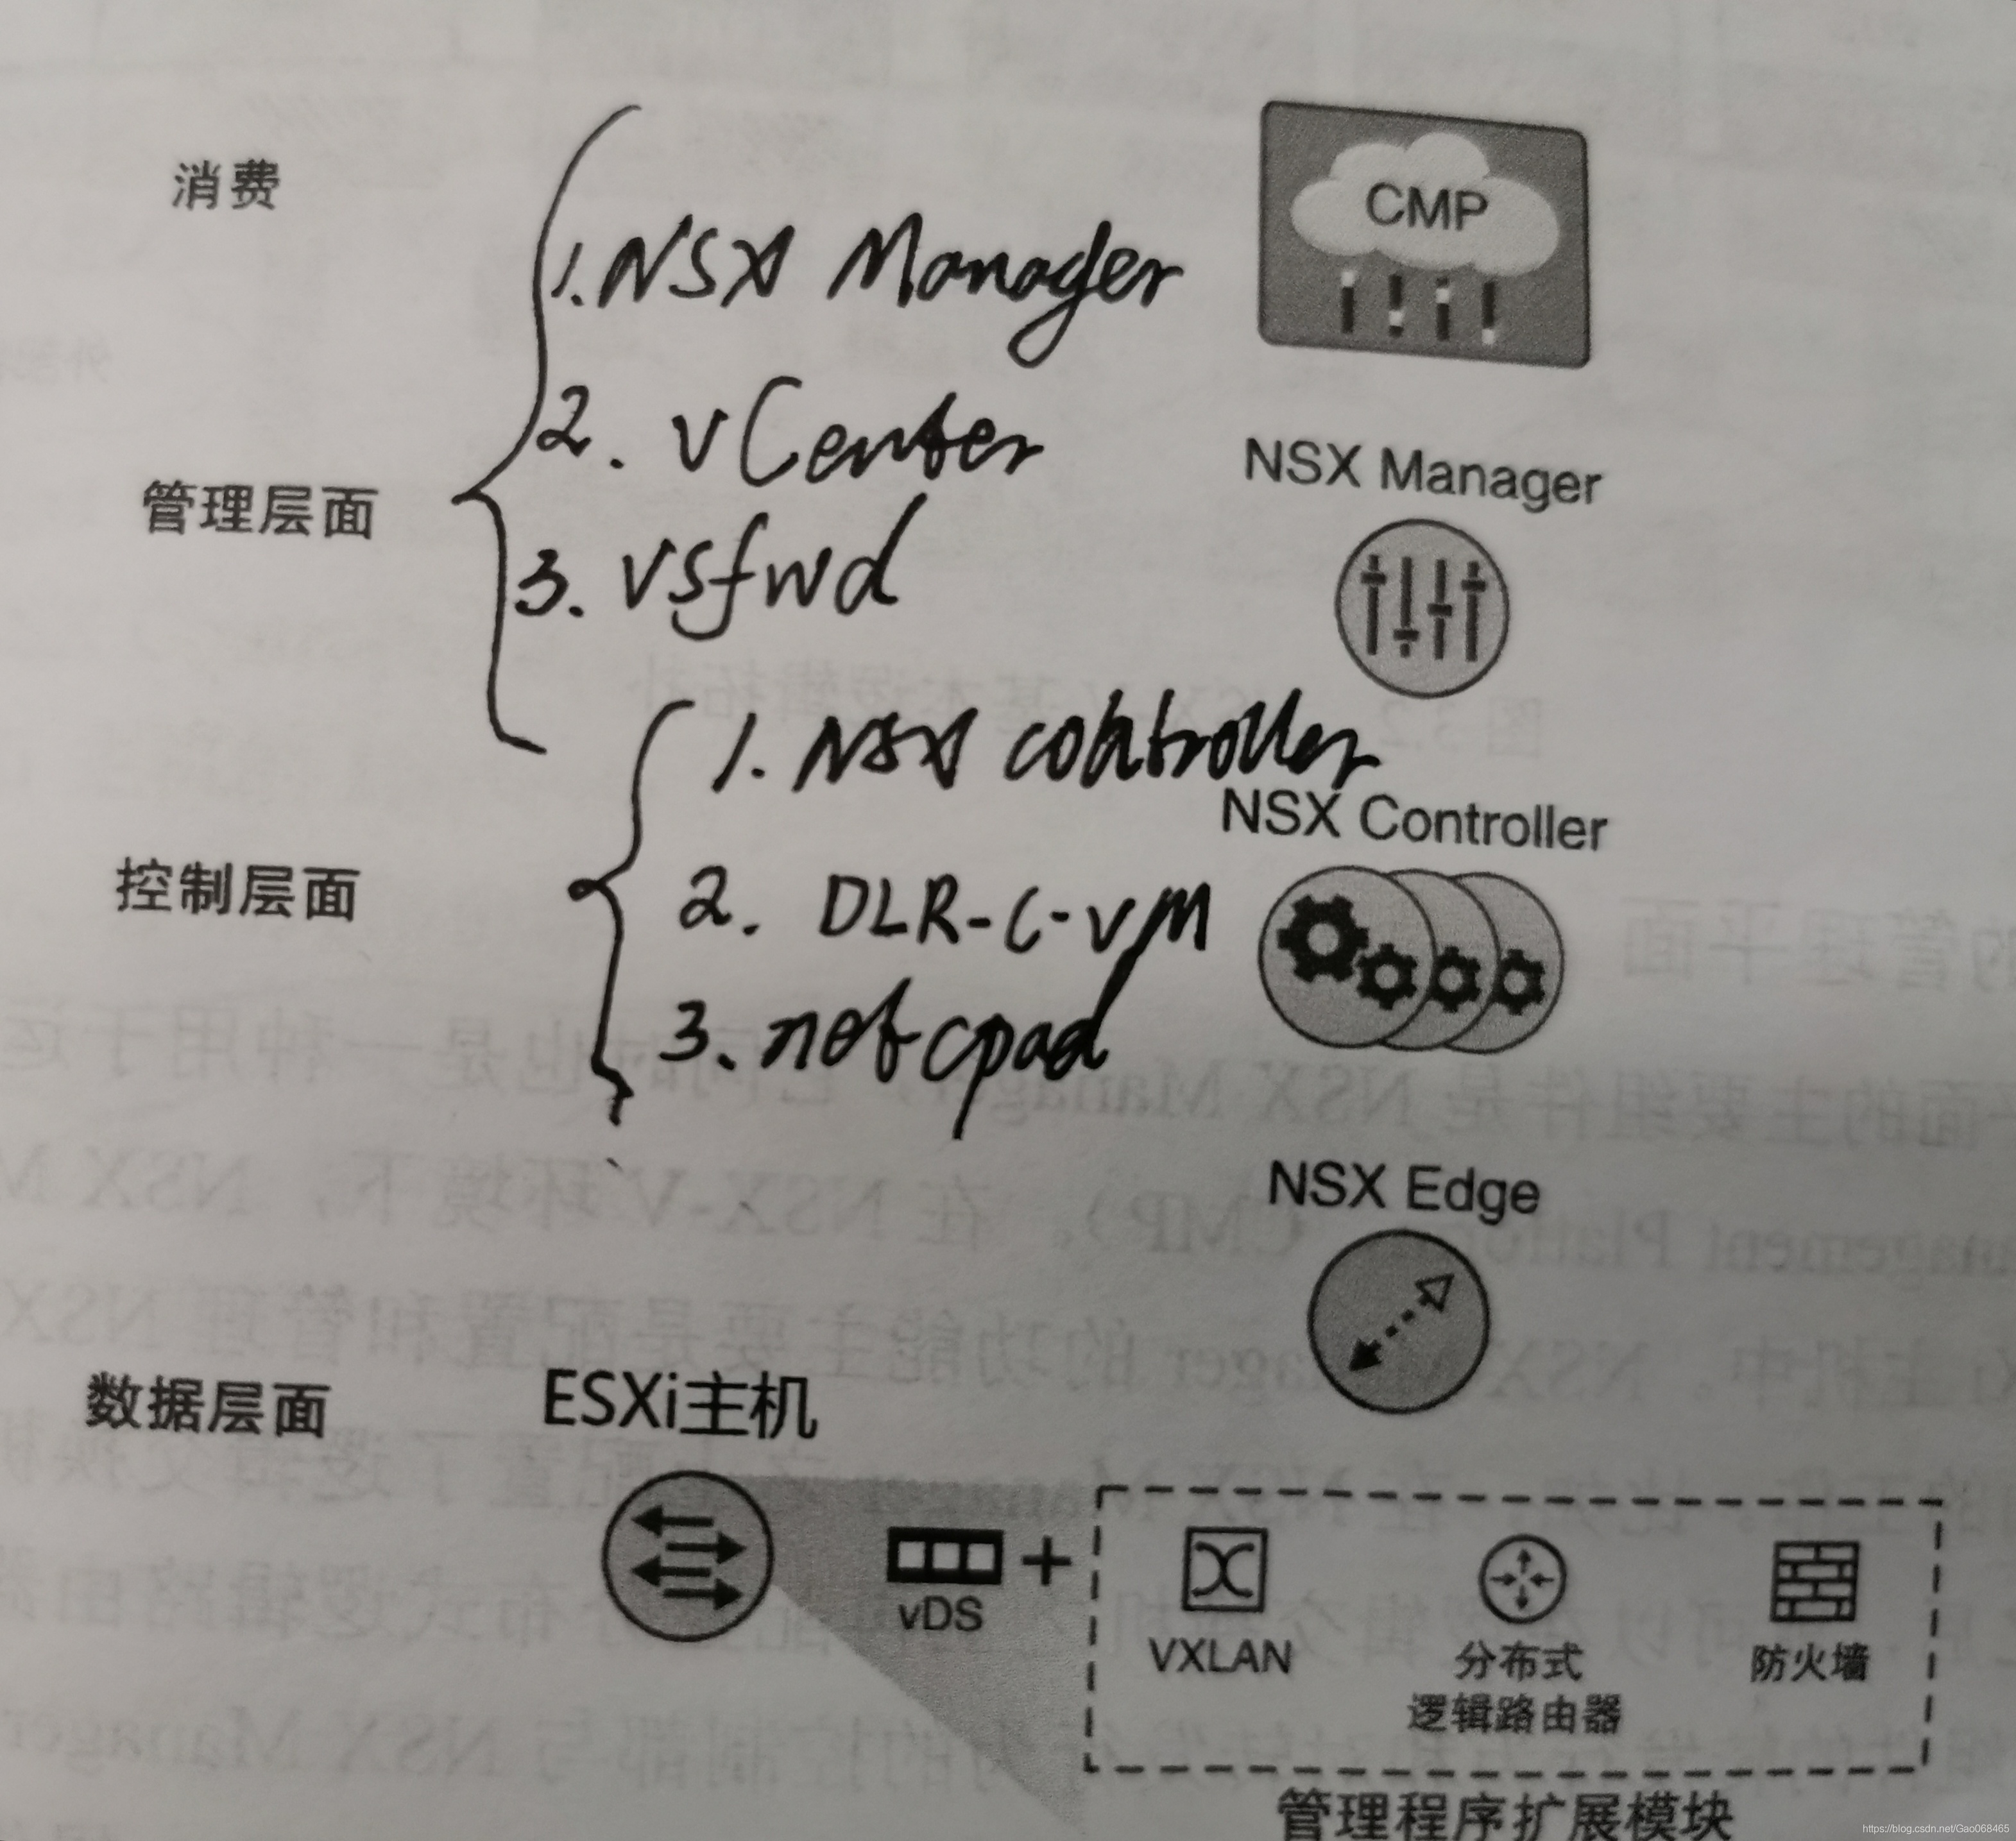 消费
CMP
1. NSX Manager
2. vCenter
NSX Manager
管理层面
3. vsfwd
1. NSX controller
NSX Controller
控制层面
2. DLR-C-VM
3. netcpad
NSX Edge
数据层面
ESXi主机
vDS
+
VXLAN
分布式
逻辑路由器
防火墙
管理程序扩展模块
https://blog.csdn.net/Gao068465